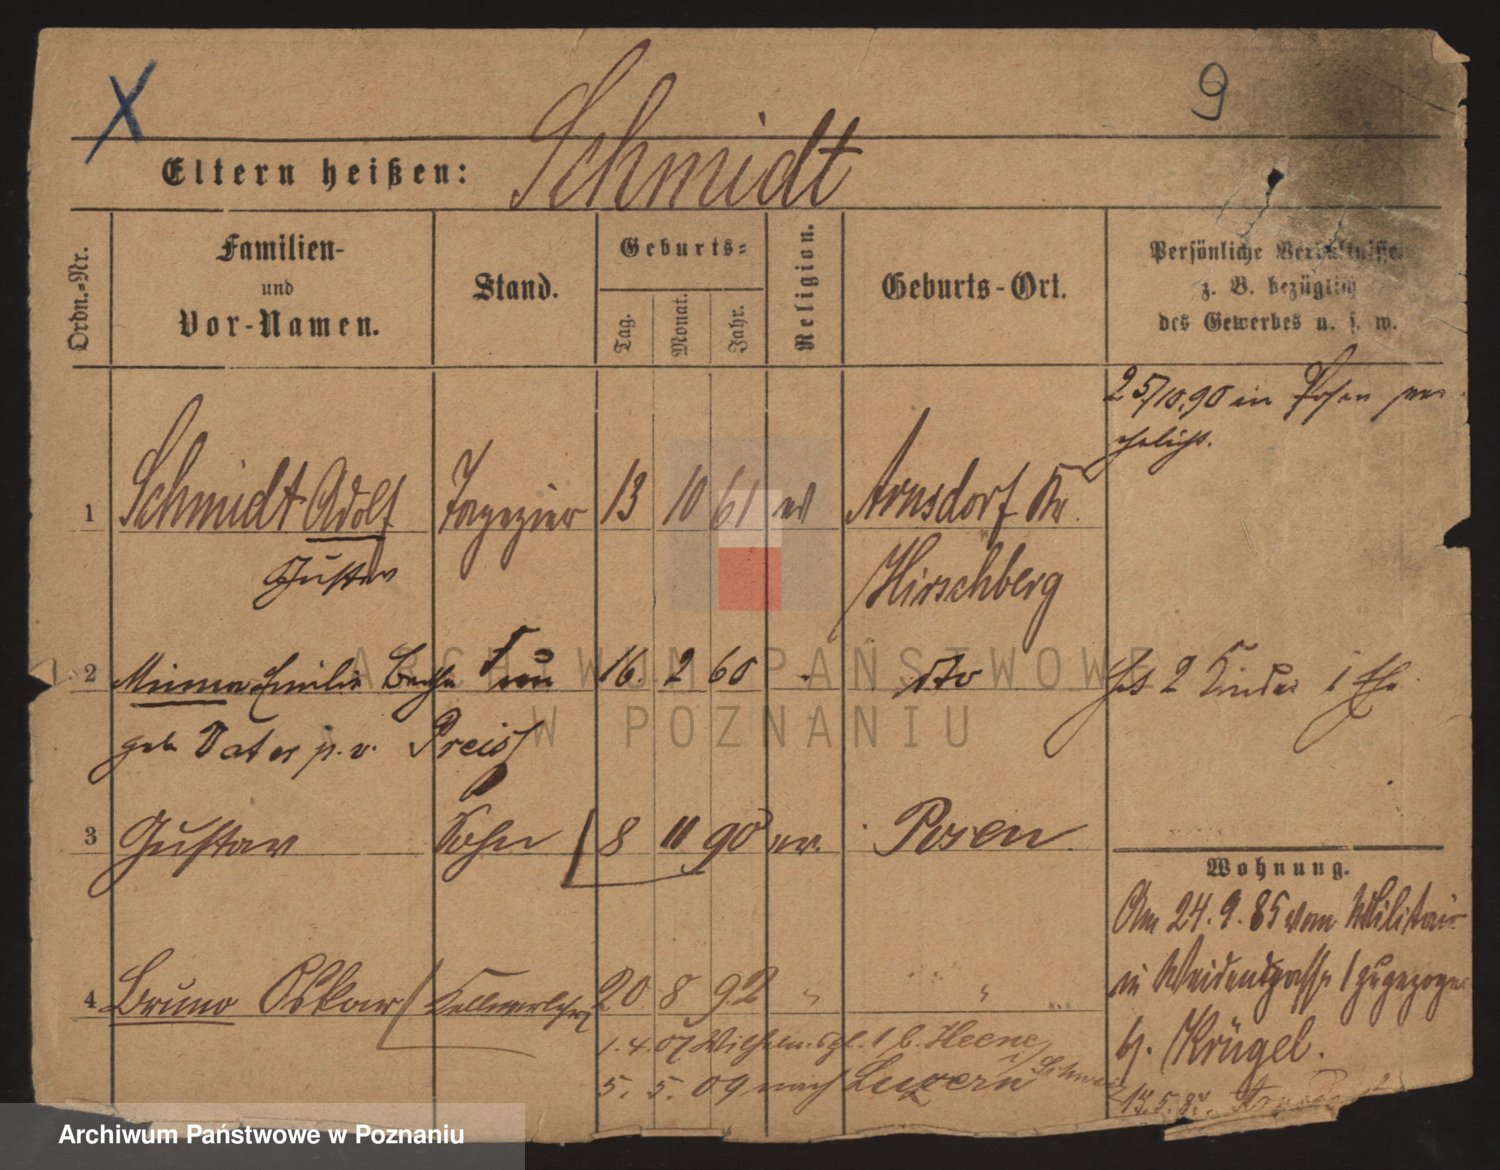 X
9
Eltern heißen: Schmidt
Ordn.-Nr.
Familien- und Vor-Namen.
Stand.
Geburts-
Tag. Monat. Jahr.
Religion.
Geburts-Ort.
Persönliche Verhältnisse,
z. B. bezüglich
des Gewerbes u. s. w.
25/10.90 in Posen ver
ehelicht.
1 Schmidt Adolf Tapezier 13 10 61 ev Arnsdorf Kr.
Gustav Hirschberg
2 Minna Emilie Frau 16. 2 60 dto hat 2 Kinder 1 Ehe
geb. Vater p. v. Preiss
3 Gustav Sohn 8 11 90 ev. Posen
Wohnung.
Am 24.9.85 vom Militair
in Weidengasse 1 zugezogen
b. Krügel.
4 Bruno Oskar Kellnerlehrl 20 8 92 " "
1.4.07 Wilhelm. pl. 1 b. Heene
5. 5. 09 nach Luzern i/ Schweiz
ARCHIWUM PAŃSTWOWE
W POZNANIU
Archiwum Państwowe w Poznaniu